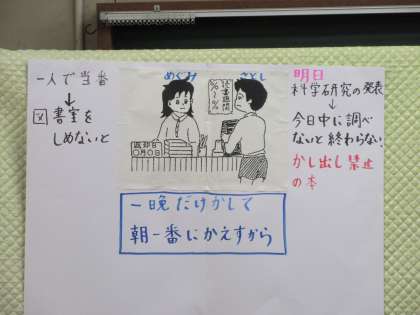 一人で当番
↓
図書室を
しめないと
めぐみ
さとし
読書週間
返却日
○月○日
明日
科学研究の発表
↓
今日中に調べ
ないと終わらない。
かし出し禁止
の本
一晩だけかして
朝一番にかえすから